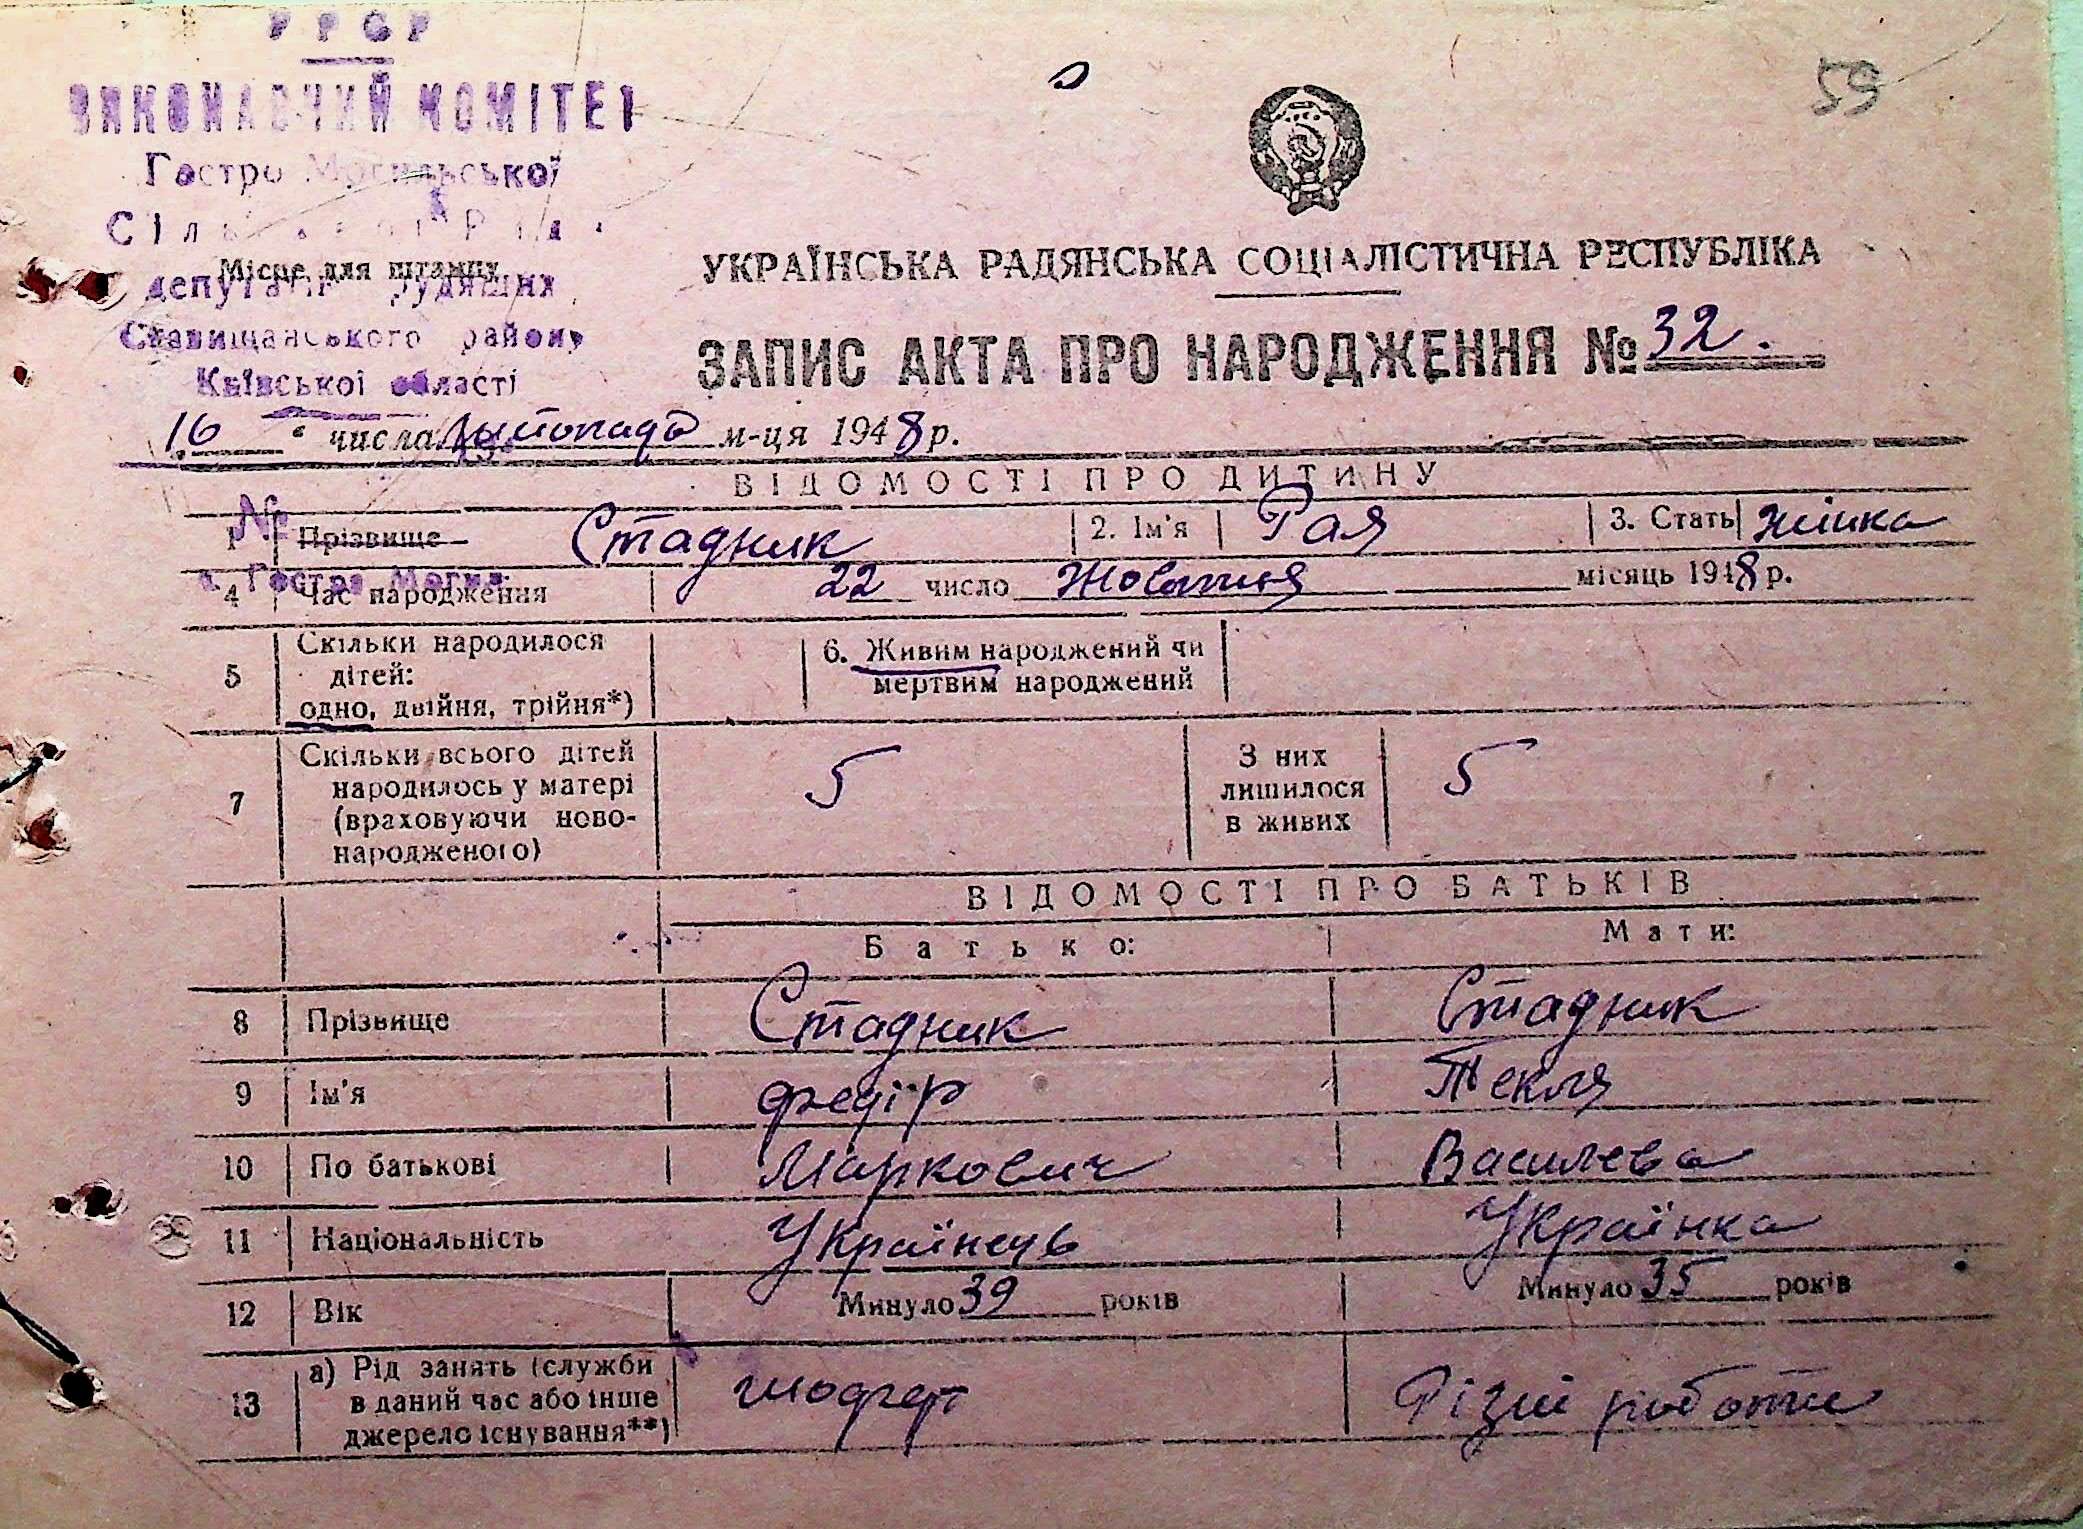 УРСР
ВИКОНАВЧИЙ КОМІТЕТ
Гостро Могильської
депутатів трудящих
Ставищанського району
Київської області
Місце для штампу
№
с. Гостра Могила
59
УКРАЇНСЬКА РАДЯНСЬКА СОЦІАЛІСТИЧНА РЕСПУБЛІКА
ЗАПИС АКТА ПРО НАРОДЖЕННЯ № 32.
16 числа листопада м-ця 1948 р.
ВІДОМОСТІ ПРО ДИТИНУ
1 Прізвище Стадник 2. Ім'я Рая 3. Стать жінка
4 Час народження 22 число Жовтня місяць 1948 р.
5 Скільки народилося дітей: одно, двійня, трійня*) 6. Живим народжений чи мертвим народжений
7 Скільки всього дітей народилось у матері (враховуючи новонародженого) 5 З них лишилося в живих 5
ВІДОМОСТІ ПРО БАТЬКІВ
Батько: Мати:
8 Прізвище Стадник Стадник
9 Ім'я Федір Текля
10 По батькові Маркович Василева
11 Національність Українець Українка
12 Вік Минуло 39 років Минуло 35 років
13 а) Рід занять (служби в даний час або інше джерело існування**) шофер Різні роботи